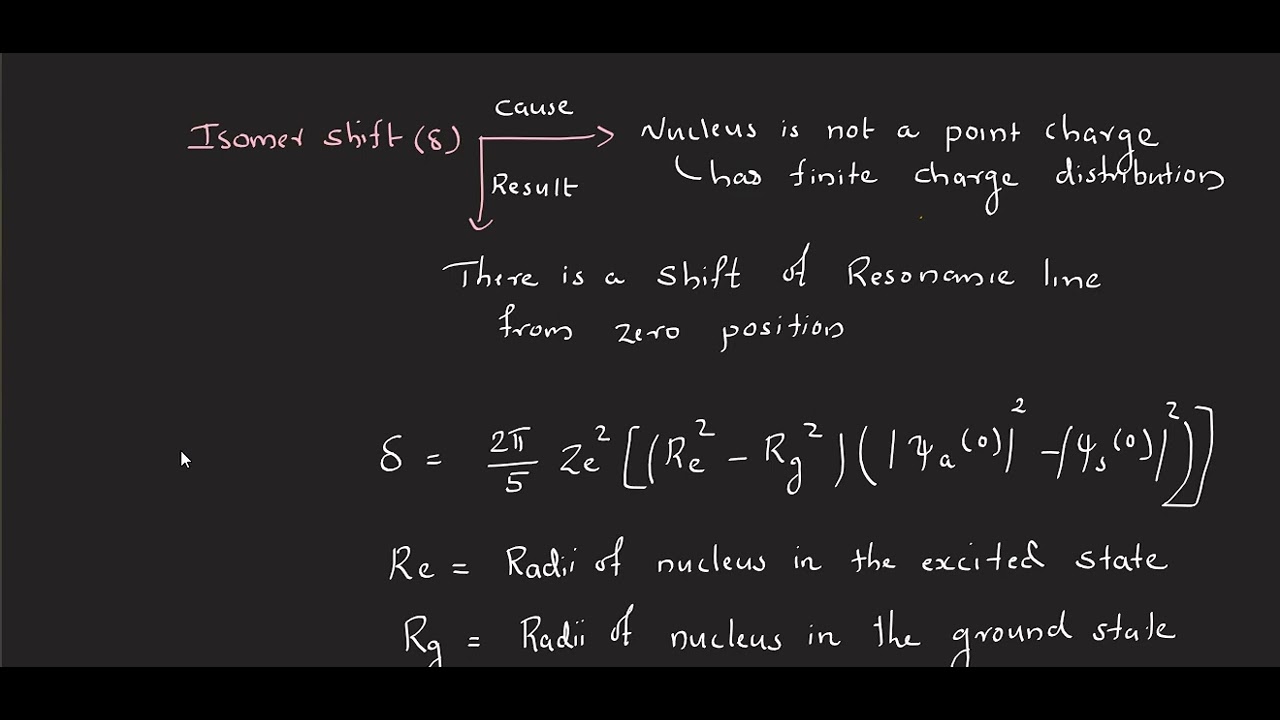 Cause
Isomer shift (δ)
Nucleus is not a point charge
has finite charge distribution
Result
There is a shift of Resonance line
from zero position
δ = 2π/5 Ze² [(Re² − Rg²)(|Ψa(0)|² − |Ψs(0)|²)]
Re = Radii of nucleus in the excited state
Rg = Radii of nucleus in the ground state